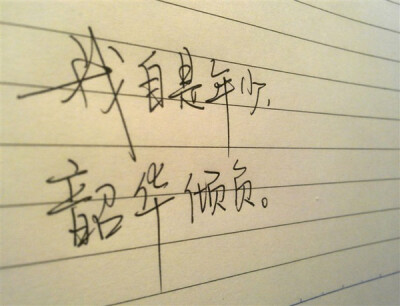 我自是年少,
韶华倾负。